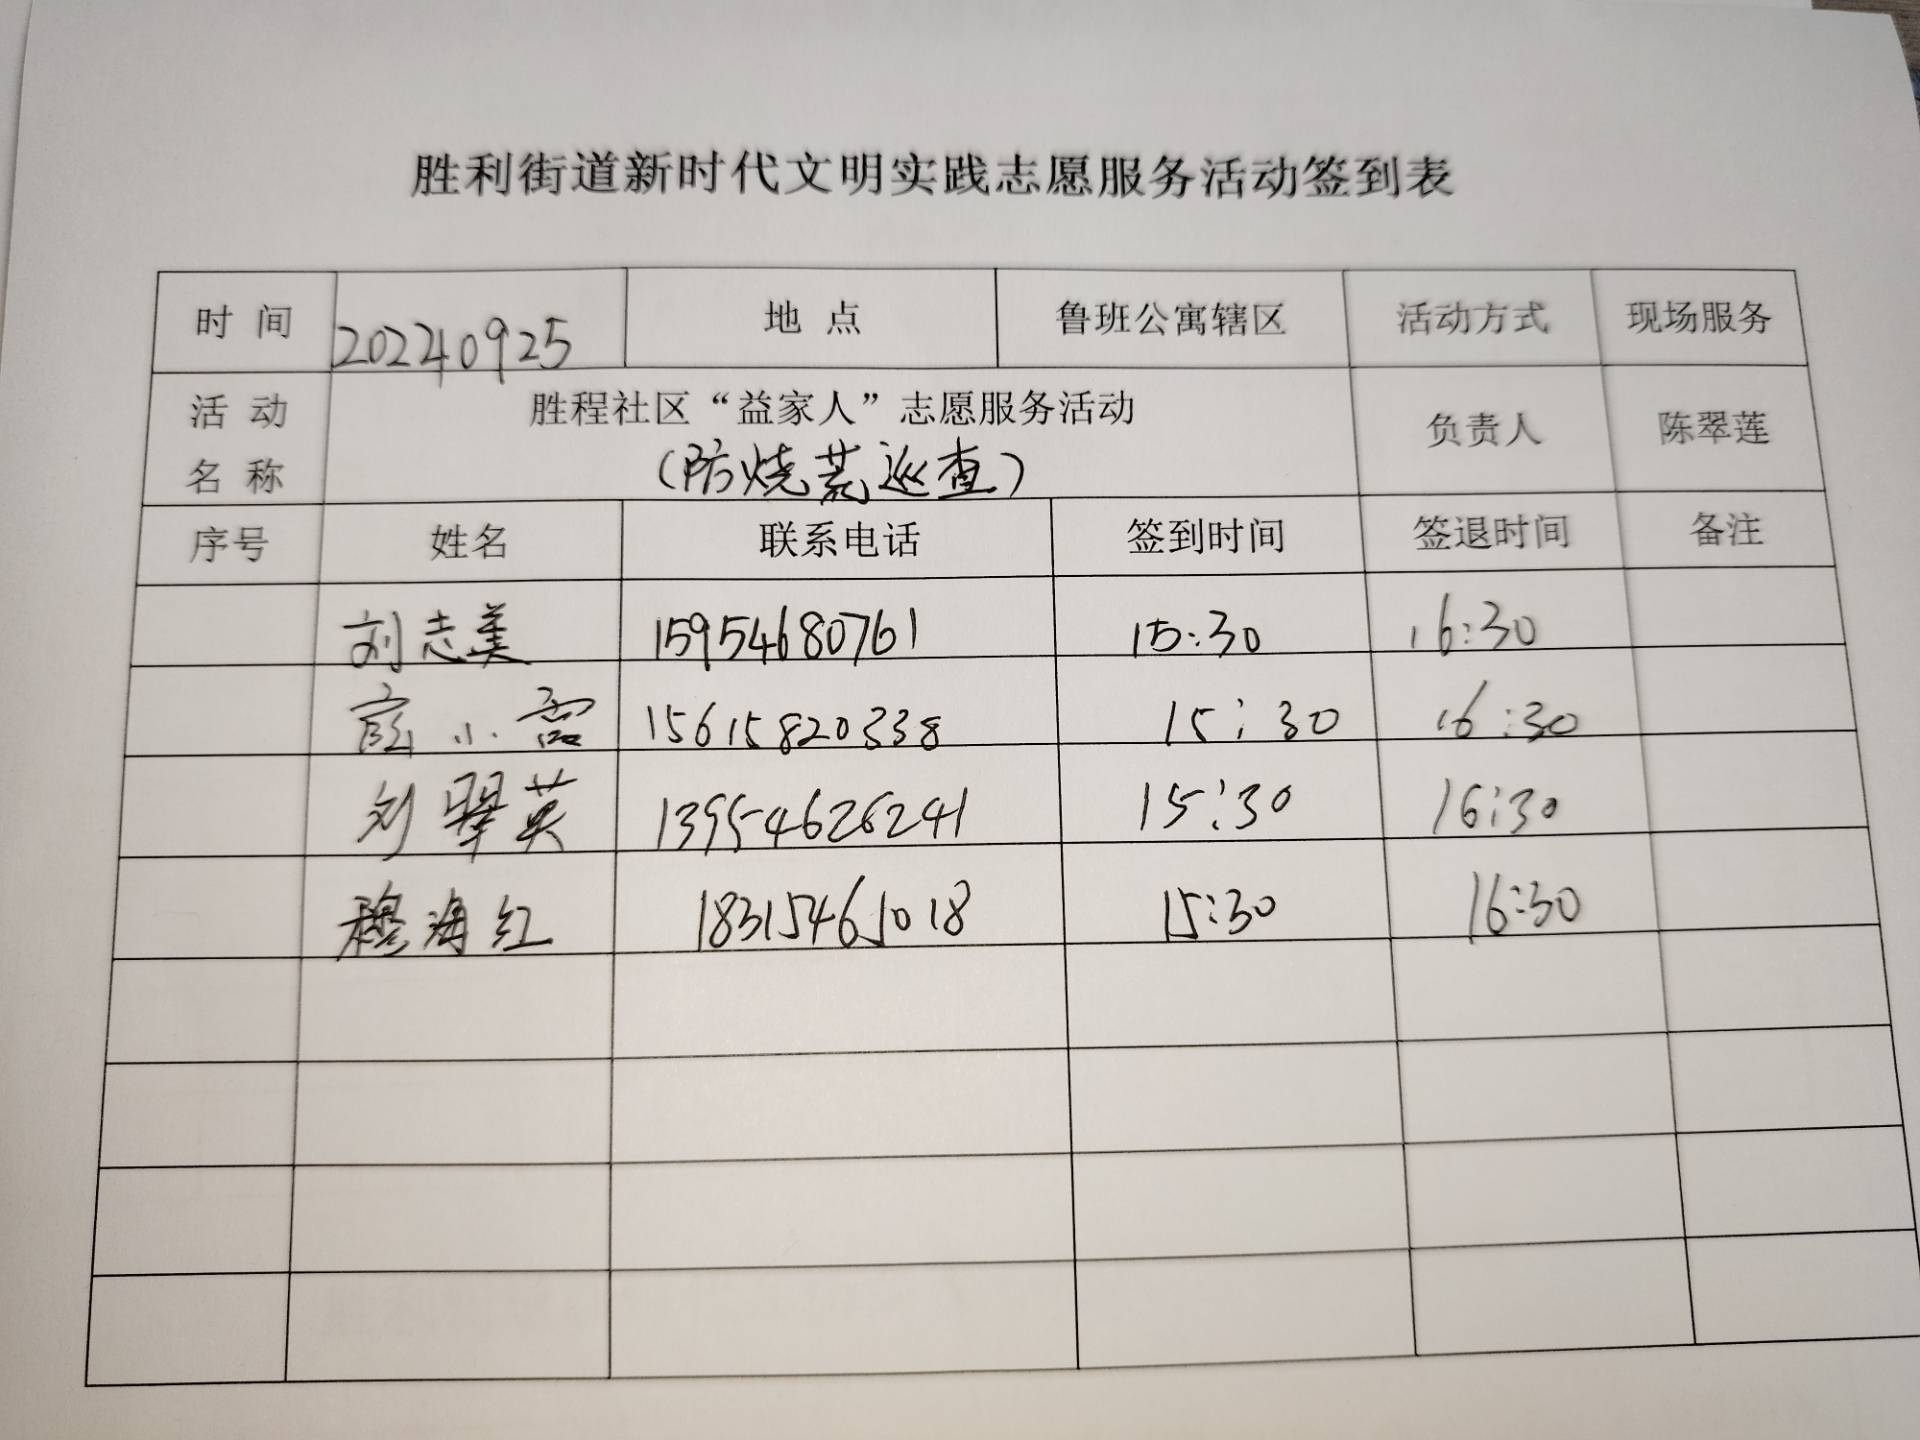 胜利街道新时代文明实践志愿服务活动签到表
时 间 20240925 地 点 鲁班公寓辖区 活动方式 现场服务
活 动 名 称 胜程社区“益家人”志愿服务活动 负责人 陈翠莲
(防烧荒巡查)
序号 姓名 联系电话 签到时间 签退时间 备注
刘志美 15954680761 15:30 16:30
小 15615820338 15:30 16:30
刘翠英 13954626241 15:30 16:30
穆海红 18315461018 15:30 16:30